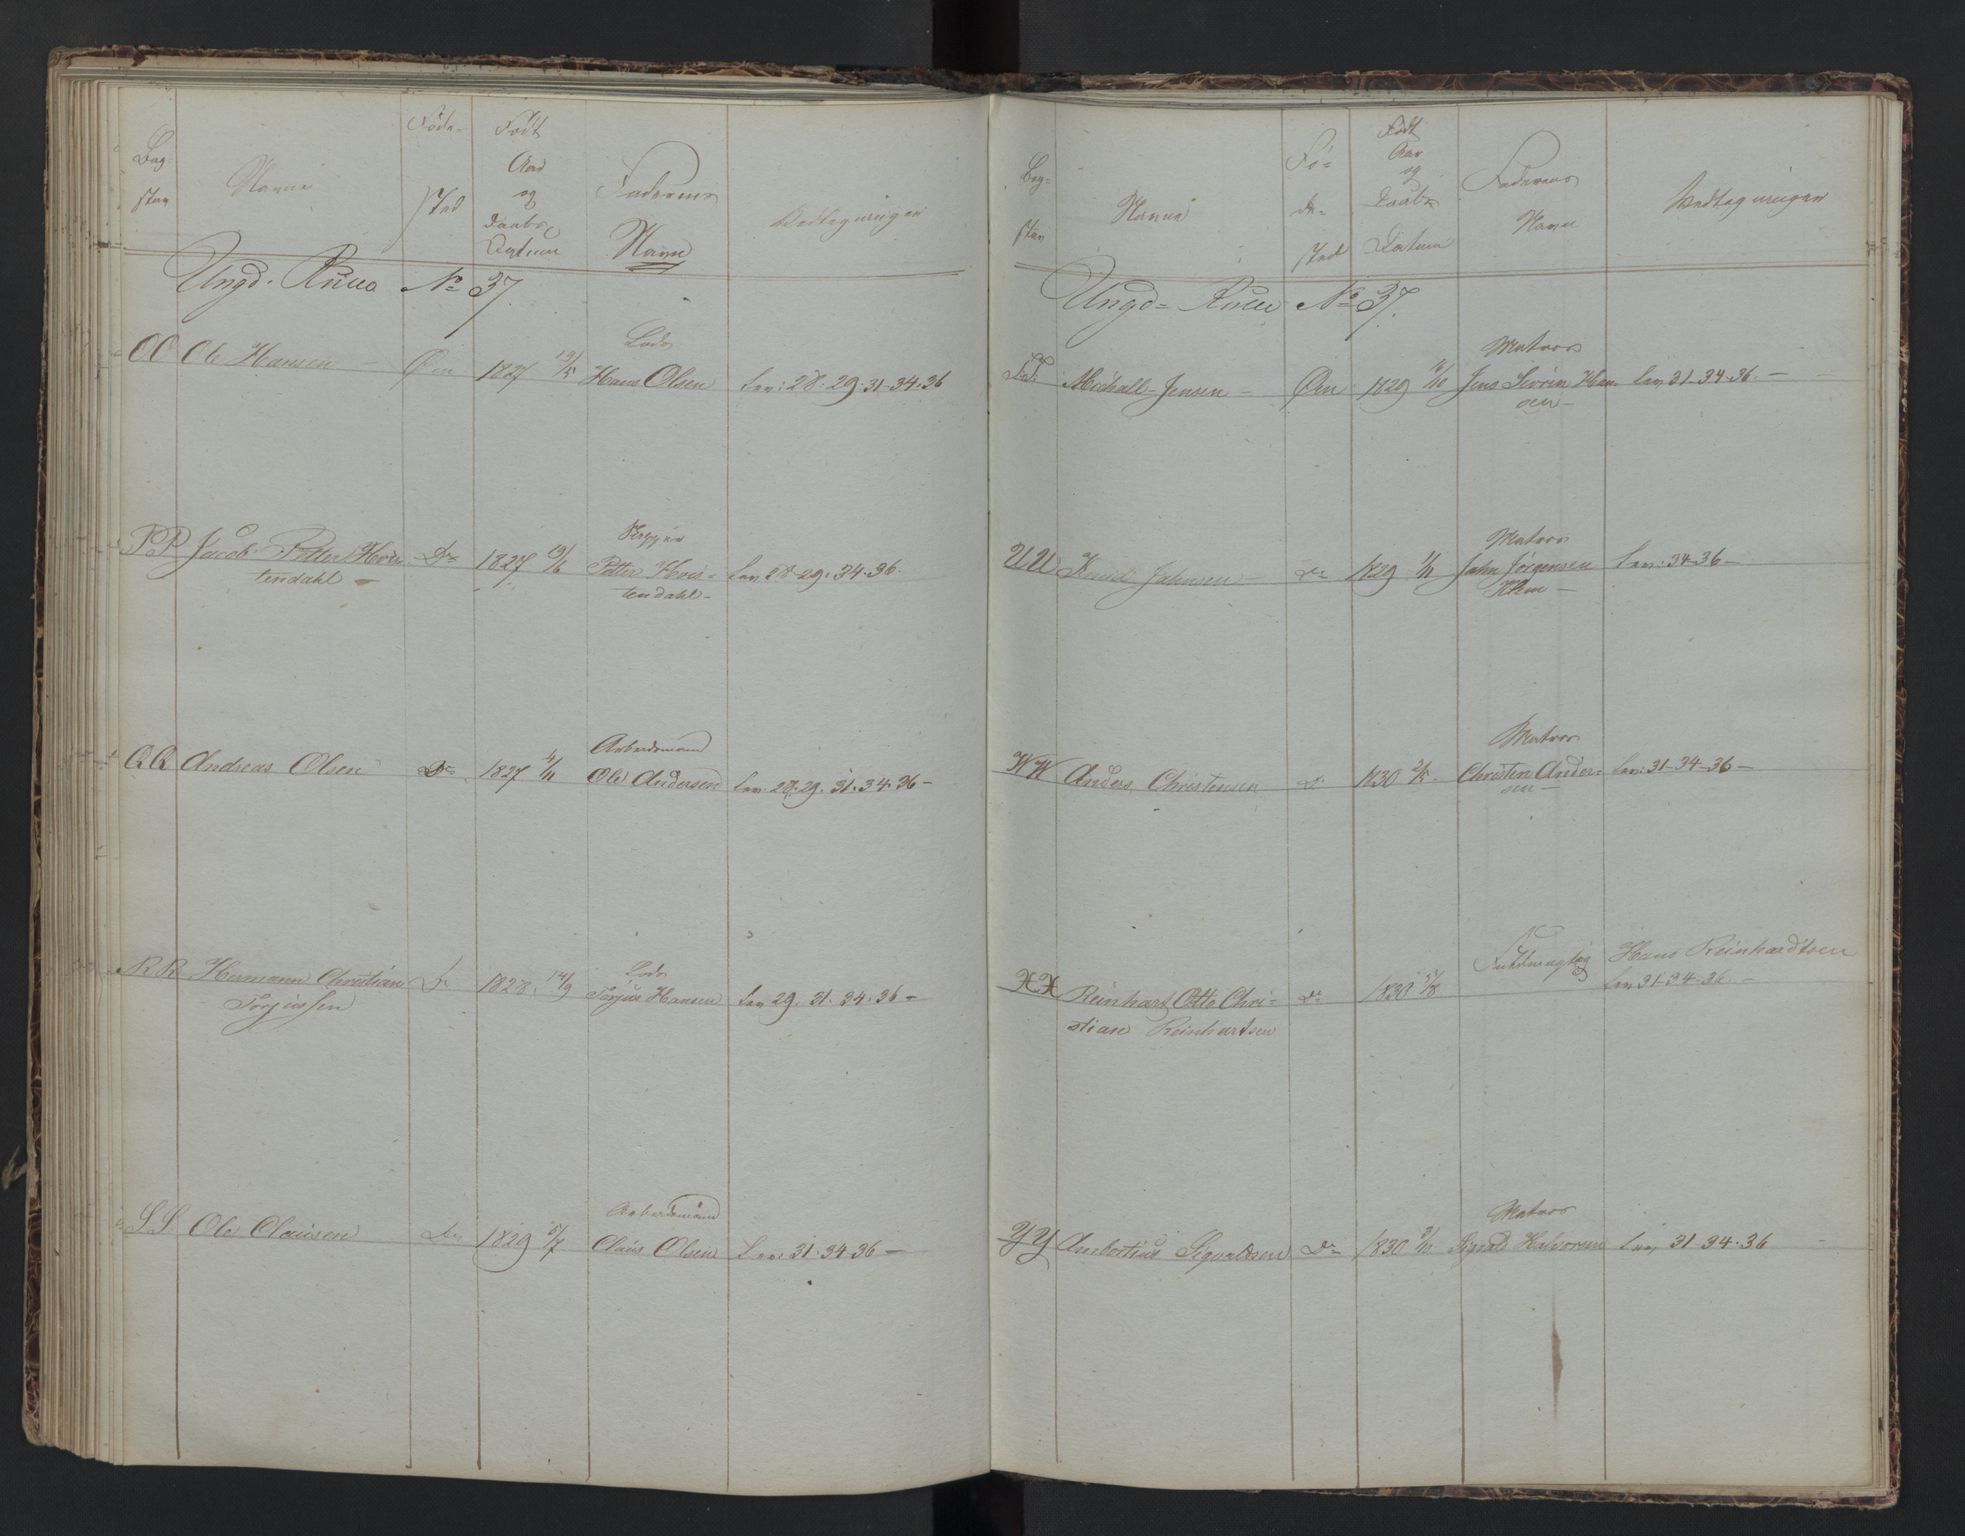 Bog-
stav
Navne
Føde-
sted
Født
Aar
og
Daabs
Datum
Faderens
Navn
Vedtegninger
Ungd. Rulle No 37.
OO Ole Hansen Øen 1827 19/5 Lods
Hans Olsen Lev: 28. 29. 31. 34. 36
PP Jacob Petter Hvis-
tendahl Do 1827 19/6 Skipper
Petter Hvis-
tendahl Lev 28. 29. 34. 36.
QQ Andreas Olsen Do 1827 4/11 Arbeidsmand
Ole Andersen Lev. 28. 29. 31. 34. 36
RR Hermann Christian
Torjussen Do 1828 14/9 Lods
Torjus Hansen Lev 29. 31. 34. 36
SS Ole Clausen Do 1829 5/7 Arbeidsmand
Claus Olsen Lev: 31. 34. 36
Bog-
stav
Navne
Fø-
de-
sted
Født
Aar
og
Daabs
Datum
Faderens
Navn
Vedtegninger
Ungd- Rulle No 37.
TT. Michall Jensen Øen 1829 16/10 Matros
Jens Sivrin Han-
sen Lev 31. 34. 36.
UU Knud Jahnsen Do 1829 1/11 Matros
Jahn Jørgensen
Lev: 34. 36
WW Anders Christensen Do 1830 2/5 Matros
Christen Ander-
sen Lev: 31. 34. 36
XX Reinhart Otto Chri-
stian Reinhartsen Do 1830 5/8 Fuldmægtig
Hans Reinhardtsen
Lev 31. 34. 36.
YY Ambortius Sigvaldsen Do 1830 3/11 Matros
Sigvald Halvorsen Lev 31. 34. 36